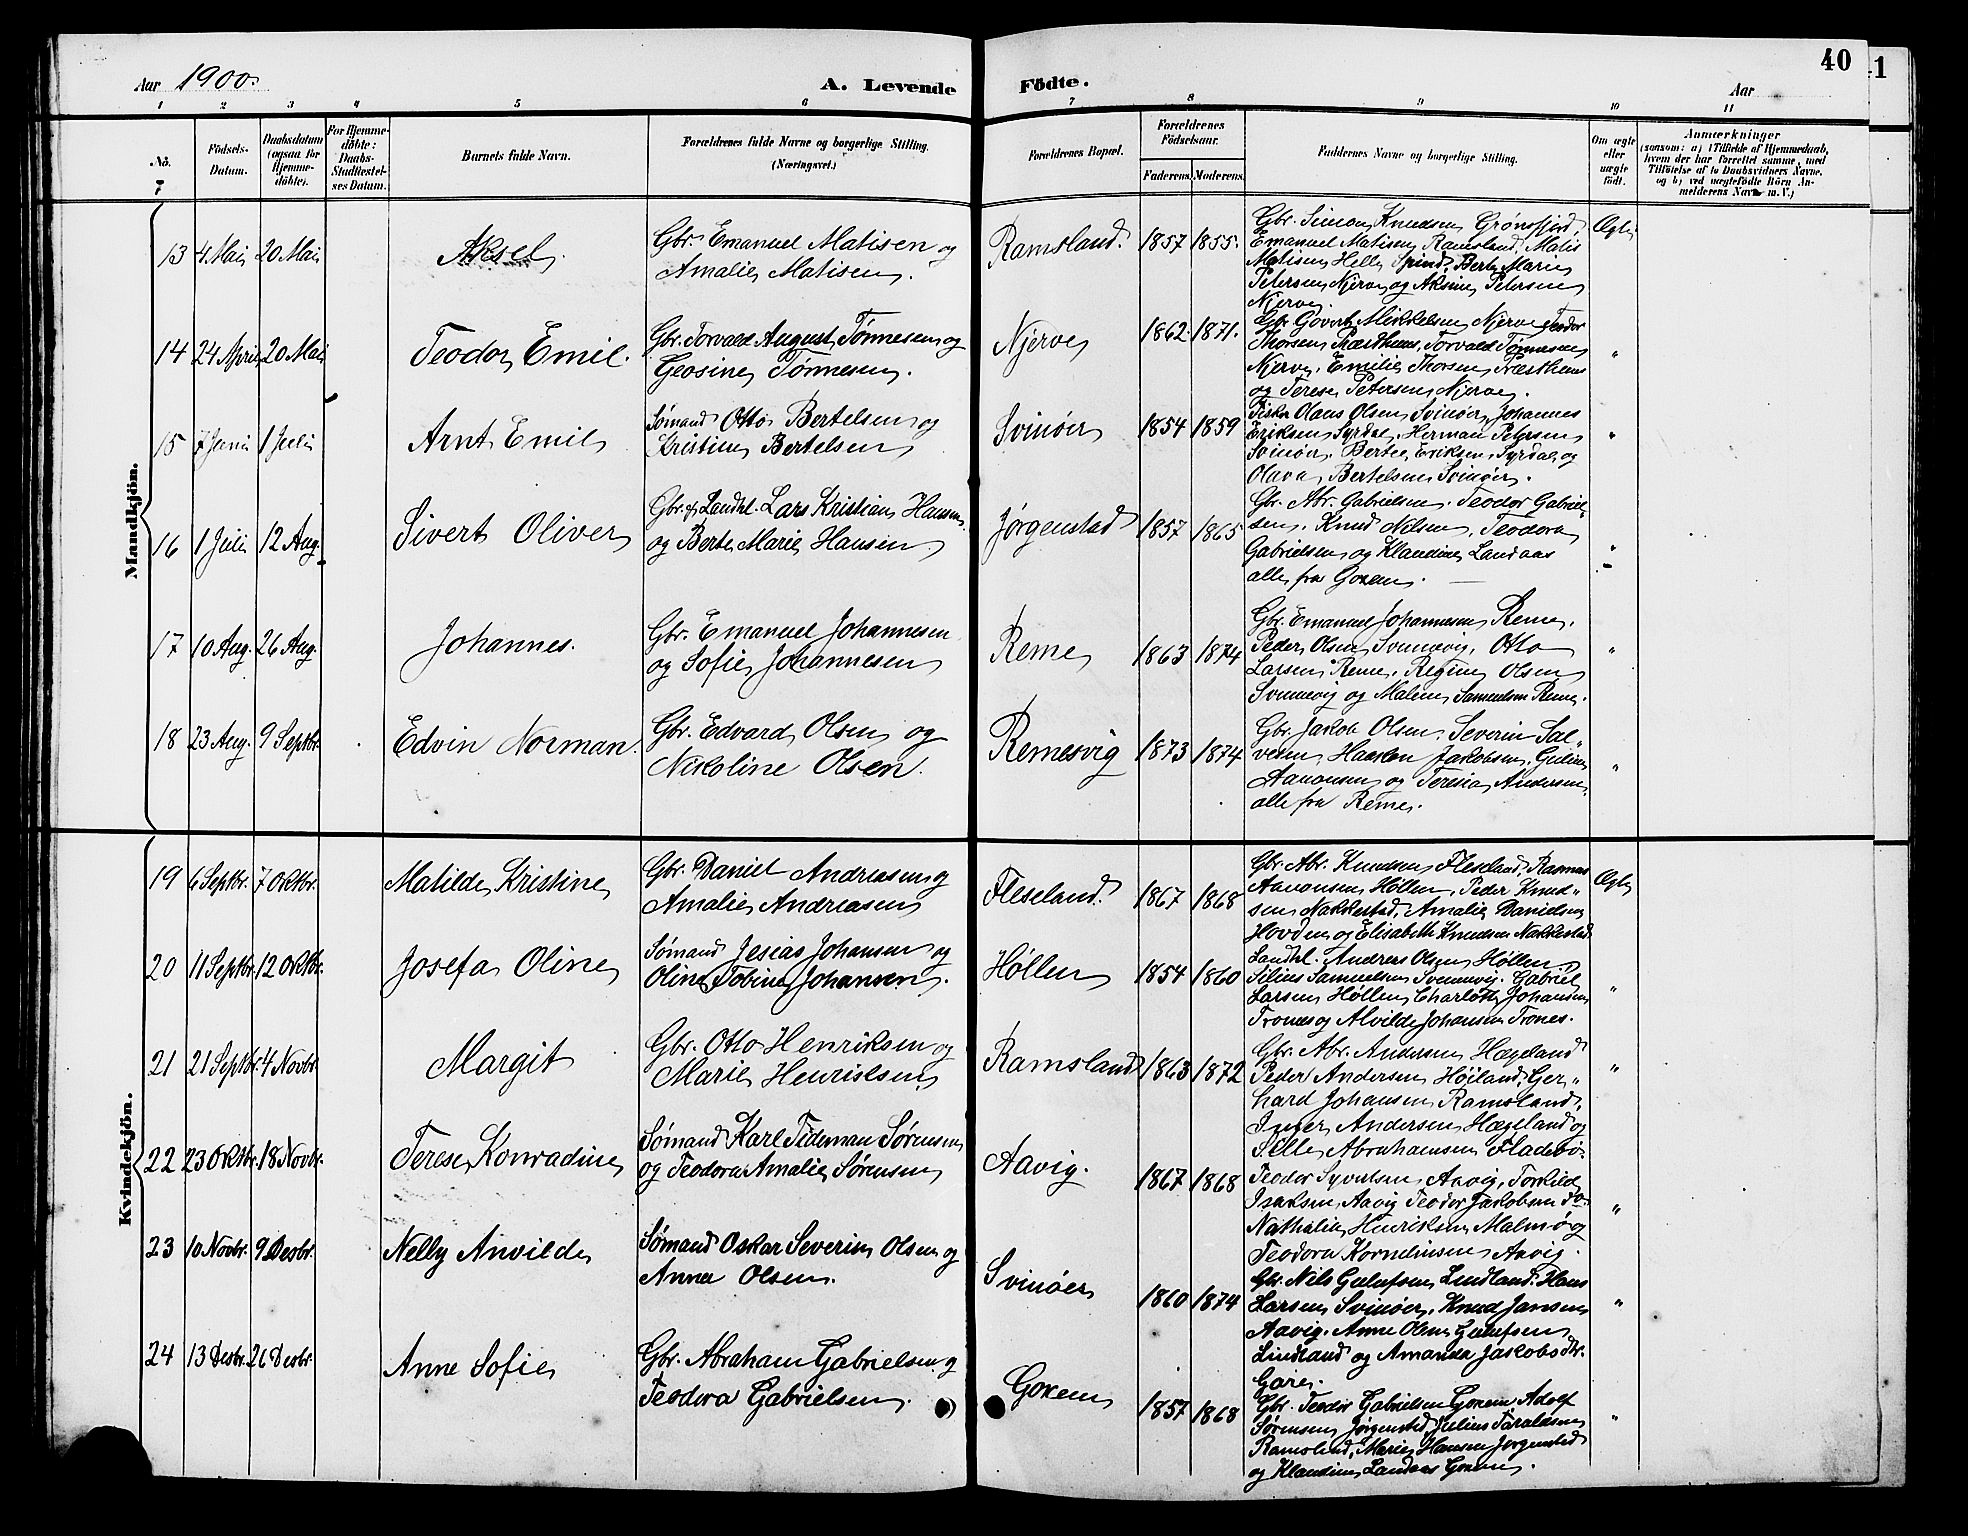 40
1
Aar 1900.
A. Levende Födte.
Aar
1 2 3 4 5 6 7 8 9 10 11
No.
Födsels-Datum.
Daabsdatum (ogsaa for Hjemme-döbte).
For Hjemme-döbte: Daabs-Stadfæstel-ses Datum.
Barnets fulde Navn.
Forældrenes fulde Navne og borgerlige Stilling. (Næringsvei.)
Forældrenes Bopæl.
Forældrenes Födselsaar.
Faderens. Moderens.
Faddernes Navne og borgerlige Stilling.
Om ægte eller uægte födt.
Anmærkninger
(saasom: a) i Tilfælde af Hjemmedaab,
hvem der har forrettet samme, med
Tilföielse af to Daabsvidners Navne,
og b) ved uægtefödte Börn An-
melderens Navn m. V.)
Mandkjön.
13 4 Mai 20 Mai Aksel.
Gbr. Emanuel Matisen og
Amalie Matisen.
Ramsland. 1857 1855.
Gbr. Simon Knudsen Grønsfjord,
Emanuel Matisen Ramsland, Matis
Matisen Helle Spind, Berte Marie
Petersen Njerve og Aksine Petersen
Njerve.
Ægte
14 24 April 20 Mai Teodor Emil.
Gbr. Torvald August Tønnesen og
Geosine Tønnesen.
Njerve 1862. 1871.
Gbr. Govert Mikkelsen Njerve Teodor
Thorsen Præsthus, Torvald Tønnesen
Njerve, Emilie Thorsen Præsthus
og Terese Petersen Njerve.
"
15 7 Juni 1 Juli Arnt Emil
Sømand Otto Bertelsen og
Kristine Bertelsen
Svinøer 1854 1859
Fisker Olaus Olsen Svinøer, Johannes
Eriksen Syrdal, Herman Petersen
Svinøer, Bertee Eriksen Syrdal og
Olava Bertelsen Svinøer.
"
16 1 Juli 12 Aug. Sivert Oliver
Gbr. & Landhl. Lars Kristian Hansen
og Berte Marie Hansen.
Jørgenstad 1857 1865
Gbr. Abr. Gabrielsen. Teodor Gabriel-
sen, Knud Nilsen, Teodora
Gabrielsen og Klaudine Landaas
alle fra Goxem.
"
17 10 Aug. 26 Aug. Johannes.
Gbr. Emanuel Johannesen
og Sofie Johannesen
Reme 1863 1874
Gbr. Emanuel Johannesen Reme,
Peder Olsen Svennevig, Otto
Larsen Reme, Regine Olsen
Svennevig og Malene Samuelsen Reme.
"
18 23 Aug. 9 Septbr. Edvin Norman.
Gbr. Edvard Olsen og
Nikoline Olsen.
Remesvig 1873 1874
Gbr. Jakob Olsen, Severin Sal-
vesen, Haakon Jakobsen, Guline
Aanonsen og Teresia Andersen,
alle fra Reme.
"
Kvindekjön.
19 6 Septbr. 7 Oktbr. Matilde Kristine
Gbr. Daniel Andreasen og
Amalie Andreasen
Fleseland. 1867 1868
Gbr. Abr. Knudsen Fleseland, Rasmus
Aanonsen Høllen, Peder Knud-
sen Nakkestad, Amalie Danielsen
Hovden og Elisabeth Knudsen Nakkestad.
Ægte
20 11 Septbr. 12 Oktbr. Josefa Oline
Sømand Jesias Johansen og
Oline Tobine Johansen.
Høllen 1854 1860
Landhl. Andreas Olsen Høllen
Silius Samuelsen Svennevig. Gabriel
Larsen Høllen, Charlotte Johansen
Trones og Alvilde Johansen Trones.
"
21 21 Septbr. 4 Novbr. Margit
Gbr. Otto Henriksen og
Marie Henriksen
Ramsland 1863 1872
Gbr. Abr. Andersen Hægeland
Peder Andersen Høiland, Ger-
hard Johansen Ramsland,
Inger Andersen Hægeland og
Sille Abrahamsen Fladebø.
"
22 23 Oktbr. 18 Novbr. Terese Konradine
Sømand Karl Tideman Sørensen
og Teodora Amalie Sørensen
Aavig. 1867 1868
Teodor Syvertsen Aavig, Torkild
Isaksen Aavig Teodor Jakobsen do
Nathalie Henriksen Malmø og
Teodora Korneliussen Aavig.
"
23 10 Novbr. 9 Desbr. Nelly Anvilde
Sømand Oskar Severin Olsen og
Anna Olsen.
Svinøer 1860 1874
Gbr. Nils Gulufsen Lindland. Hans
Larsen Svinøer, Knud Jansen
Aavig. Anne Olene Gulufsen
Lindland og Amanda Jakobsdtr.
Gare.
"
24 13 Desbr. 26 Desbr. Anne Sofie
Gbr. Abraham Gabrielsen og
Teodora Gabrielsen.
Goxem 1857 1868
Gbr. Teodor Gabrielsen Goxem Adolf
Sørensen Jørgenstad, Julius Taraldsen
Ramsland, Marie Hansen Jørgenstad
og Klaudine Landaas Goxem.
"